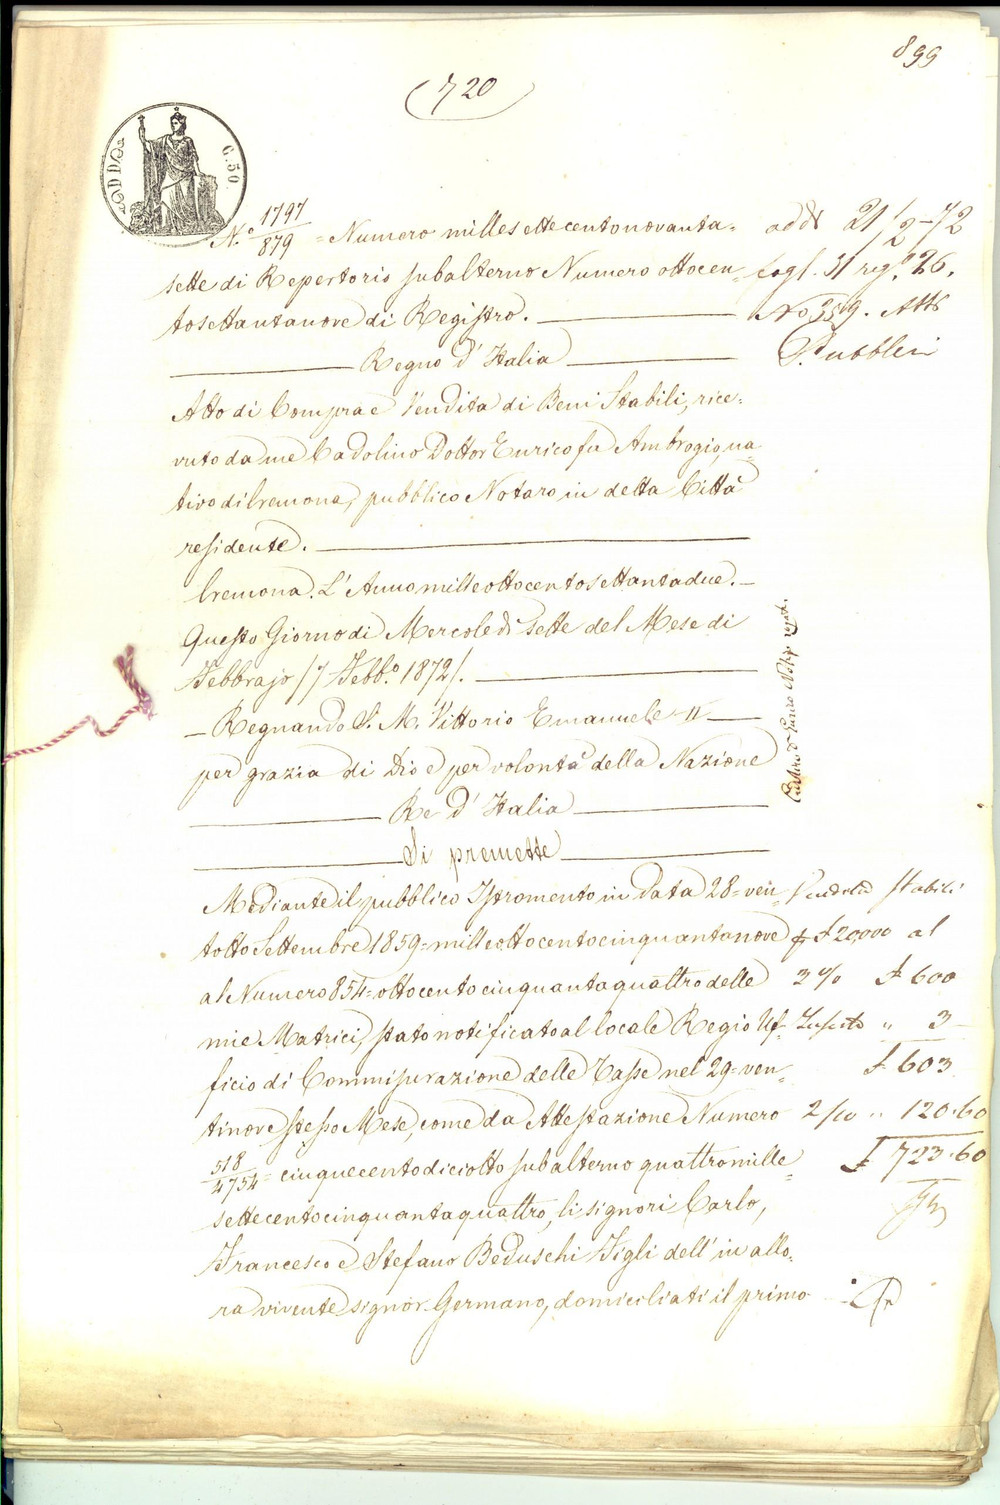 899
(720)
C. 50
N.º 1797/879 = Numero millesettecentonovanta=
sette di Repertorio subalterno Numero ottocen=
tosettantanove di Registro.
Regno d' Italia
Atto di Compra e Vendita di Beni Stabili, rice=
vuto da me Cadolino Dottor Enrico fu Ambrogio, na=
tivo di Cremona, pubblico Notaro in detta Città
residente.
Cremona. L' Anno milleottocentosettantadue.
Questo Giorno di Mercoledì sette del Mese di
Febbrajo /7 Febb.º 1872/.
Regnando S. M. Vittorio Emanuele II
per grazia di Dio e per volontà della Nazione
Re d' Italia
Si premette
Mediante il pubblico Istromento in Data 28= ven=
totto Settembre 1859= milleottocentocinquantanove
al Numero 854= ottocentocinquantaquattro delle
mie Matrici, stato notificato al locale Regio Uf=
ficio di Commisurazione delle Tasse nel 29= ven=
tinove stesso Mese, come da Attestazione Numero
518/4754= cinquecentodiciotto subalterno quattromille=
settecentocinquantaquattro, li signori Carlo,
Francesco e Stefano Beduschi Figli dell' in allo=
ra vivente signor Germano, domiciliati il primo
addì 21/2-72
fogl. 31 reg.º 26.
No 359. Atti
Pubblici
Vendita stabili
£ 20000 al
3 % £ 600
" 3
£ 603
2/10 " 120.60
£ 723.60